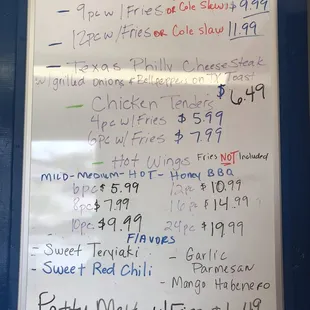 - 9pc w/ Fries OR Cole Slaw $9.99
- 12pc w/ Fries OR Cole slaw 11.99
- Texas Philly Cheese Steak
w/grilled onions & Bellpeppers on TX Toast
$6.49
- Chicken Tenders
4pc w/ Fries $5.99
6pc w/ Fries $7.99
- Hot Wings Fries NOT Included
MILD-MEDIUM-HOT-Honey BBQ
6pc $5.99 12pc $10.99
8pc $7.99 16pc $14.99
10pc $9.99 24pc $19.99
FLAVORS
- Sweet Teryiaki - Garlic
Parmesan
- Sweet Red Chili - Mango Habenero
Patty Melt w/ Fries